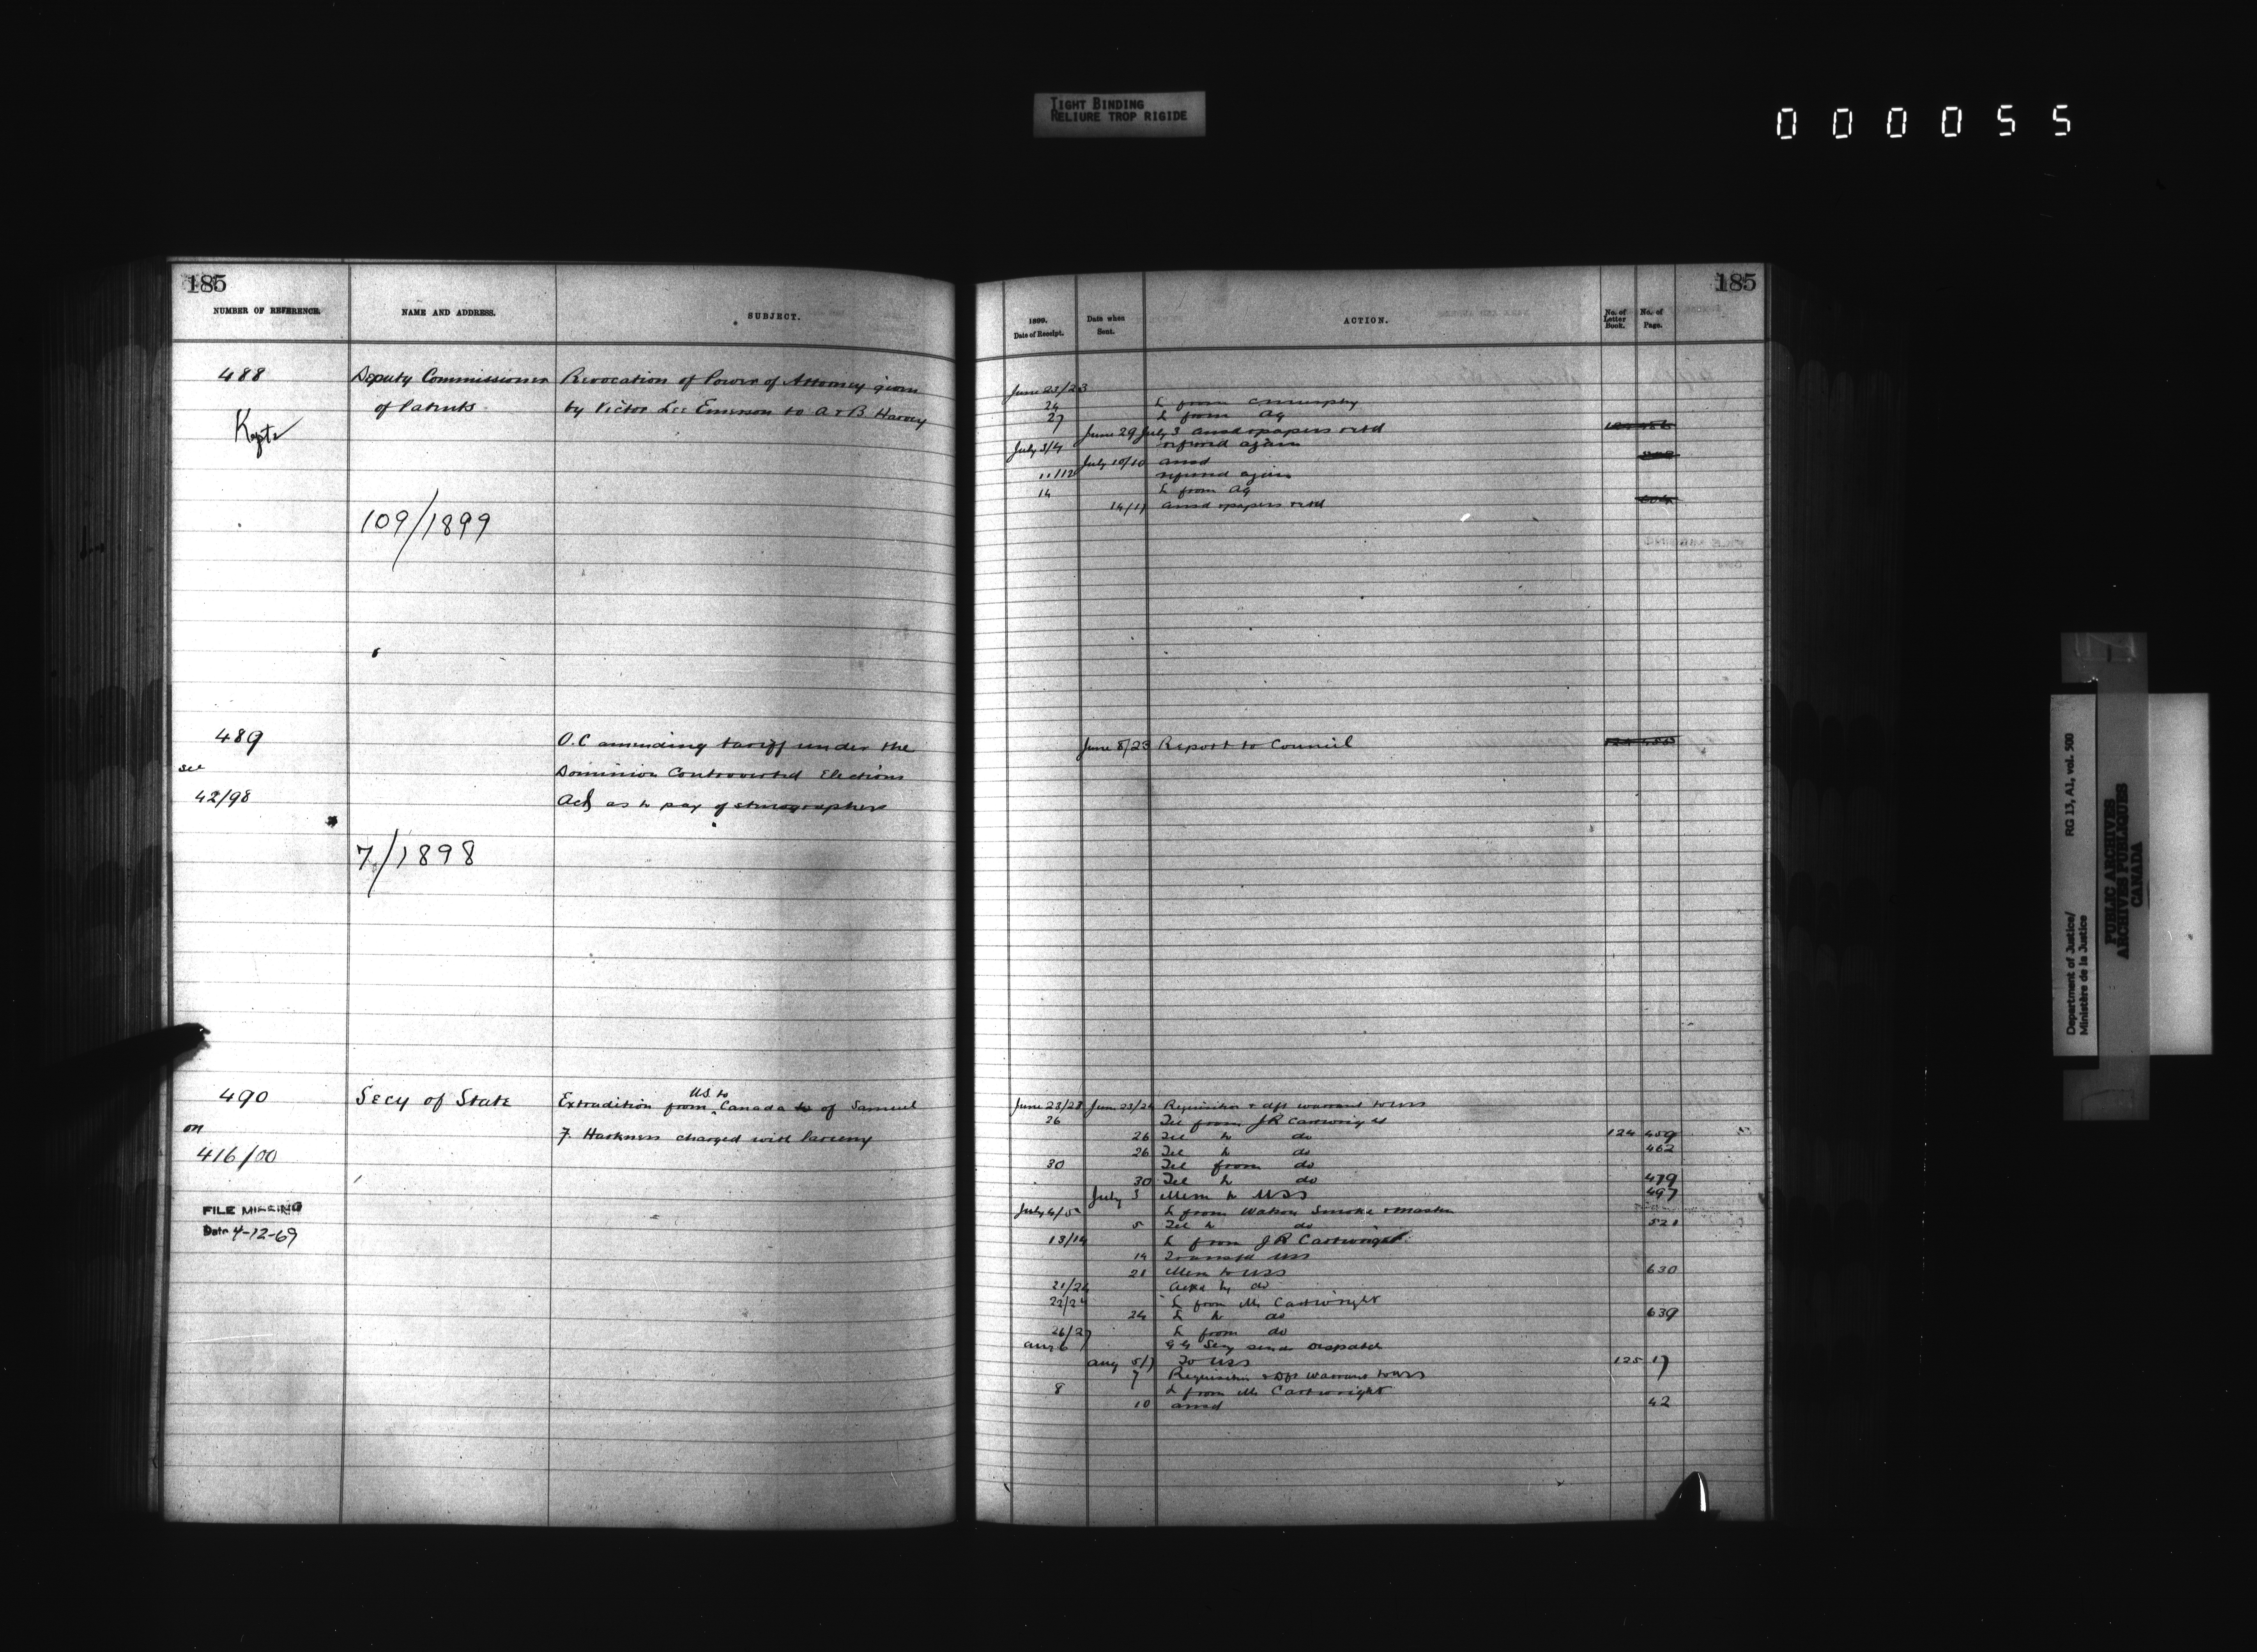 TIGHT BINDING
RELIURE TROP RIGIDE
000055
185
NUMBER OF REFERENCE.
NAME AND ADDRESS.
SUBJECT.
488
Deputy Commissioner
Revocation of Power of Attorney given
of Patents
by Victor Lee Emerson to A & B Harvey
Kept
109/1899
489
O.C amending tariff under the
see
Dominion Controverted Elections
42/98
Act as to pay of stenographers
7/1898
490
Secy of State
US to
Extradition from Canada to of Samuel
on
F. Harkness charged with larceny
416/00
FILE MISSING
Date 4-12-69
185
1899.
Date of Receipt.
Date when
Sent.
ACTION.
No. of
Letter
Book.
No. of
Page.
June 23/23
24 L from C Murphy
27 L from AG
June 29 July 3 ansd & papers retd
July 3/4 referred again
July 10/10 ansd
11/12 referred again
14 L from AG
14/17 ansd & papers retd
June 8/23 Report to Council
June 23/23 June 23/26 Requisition & dft warrant to USS
26 Tel from J R Cartwright
26 Tel to do 124 459
26 Tel to do 462
30 Tel from do
30 Tel to do 479
July 3 Mem to USS 497
July 4/5 L from Watson Smoke & Masten
5 Tel to do 521
13/14 L from J R Cartwright
14 Transfd USS
21 Mem to USS 630
21/24 Ackd by do
22/24 L from Mr Cartwright
24 L to do 639
26/27 L from do
Aug 6 GG Secy sends despatch
Aug 5/7 To USS 125 17
7 Requisition & Dft Warrant to USS
8 L from Mr Cartwright
10 ansd 42
Department of Justice/
Ministère de la Justice
RG 13, A1, vol. 500
PUBLIC ARCHIVES
ARCHIVES PUBLIQUES
CANADA